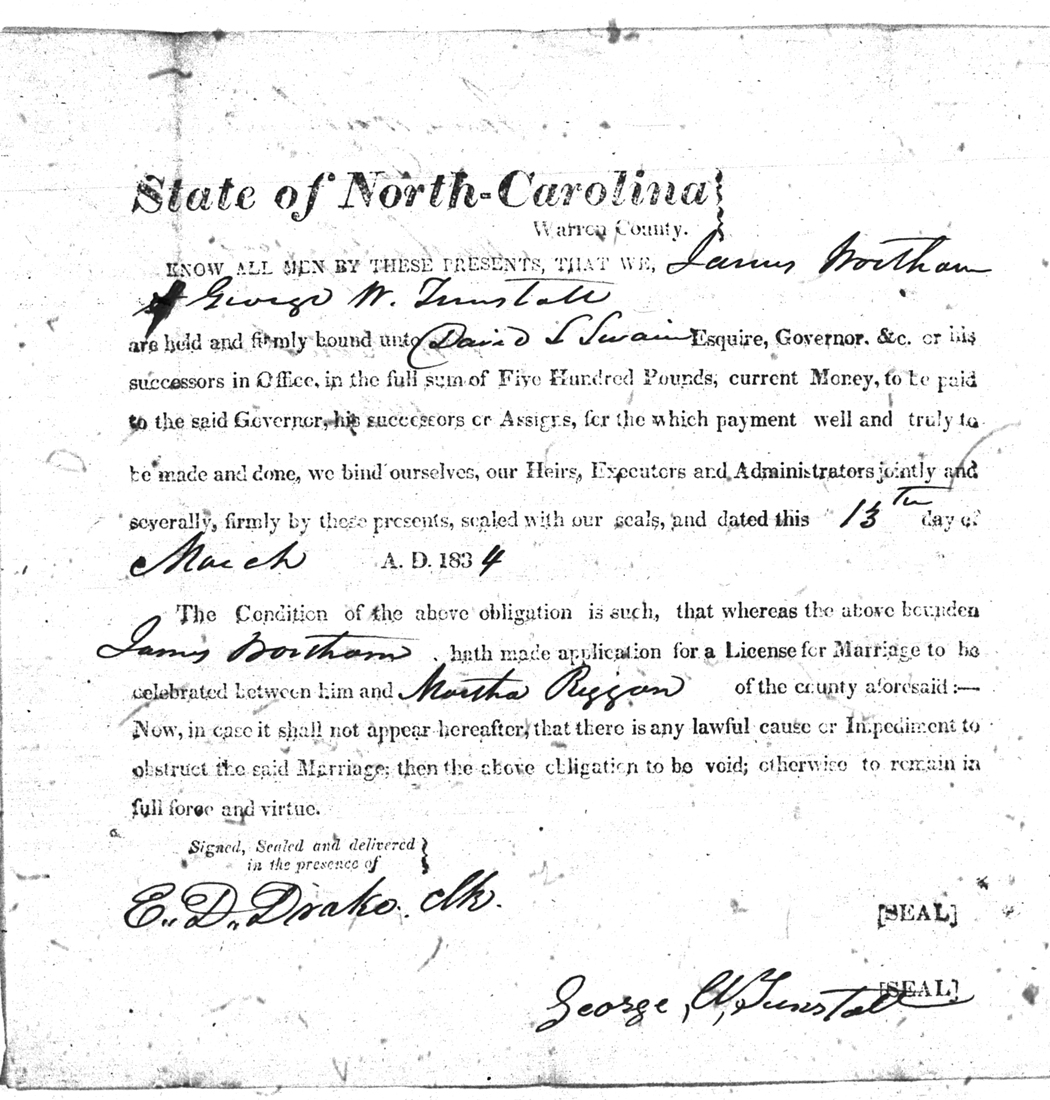 State of North-Carolina
Warren County.
KNOW ALL MEN BY THESE PRESENTS, THAT WE, James Wortham
& George W. Tunstall
are held and firmly bound unto David L Swain Esquire, Governor, &c. or his
successors in Office, in the full sum of Five Hundred Pounds, current Money, to be paid
to the said Governor, his successors or Assigns, for the which payment well and truly to
be made and done, we bind ourselves, our Heirs, Executors and Administrators jointly and
severally, firmly by these presents, sealed with our seals, and dated this 13th day of
March A. D. 1834
The Condition of the above obligation is such, that whereas the above bounden
James Wortham hath made application for a License for Marriage to be
celebrated between him and Martha Riggan of the county aforesaid:—
Now, in case it shall not appear hereafter, that there is any lawful cause or Impediment to
obstruct the said Marriage; then the above obligation to be void; otherwise to remain in
full force and virtue.
Signed, Sealed and delivered
in the presence of
E. D. Drake. Clk.
[SEAL]
George W. Tunstall [SEAL]